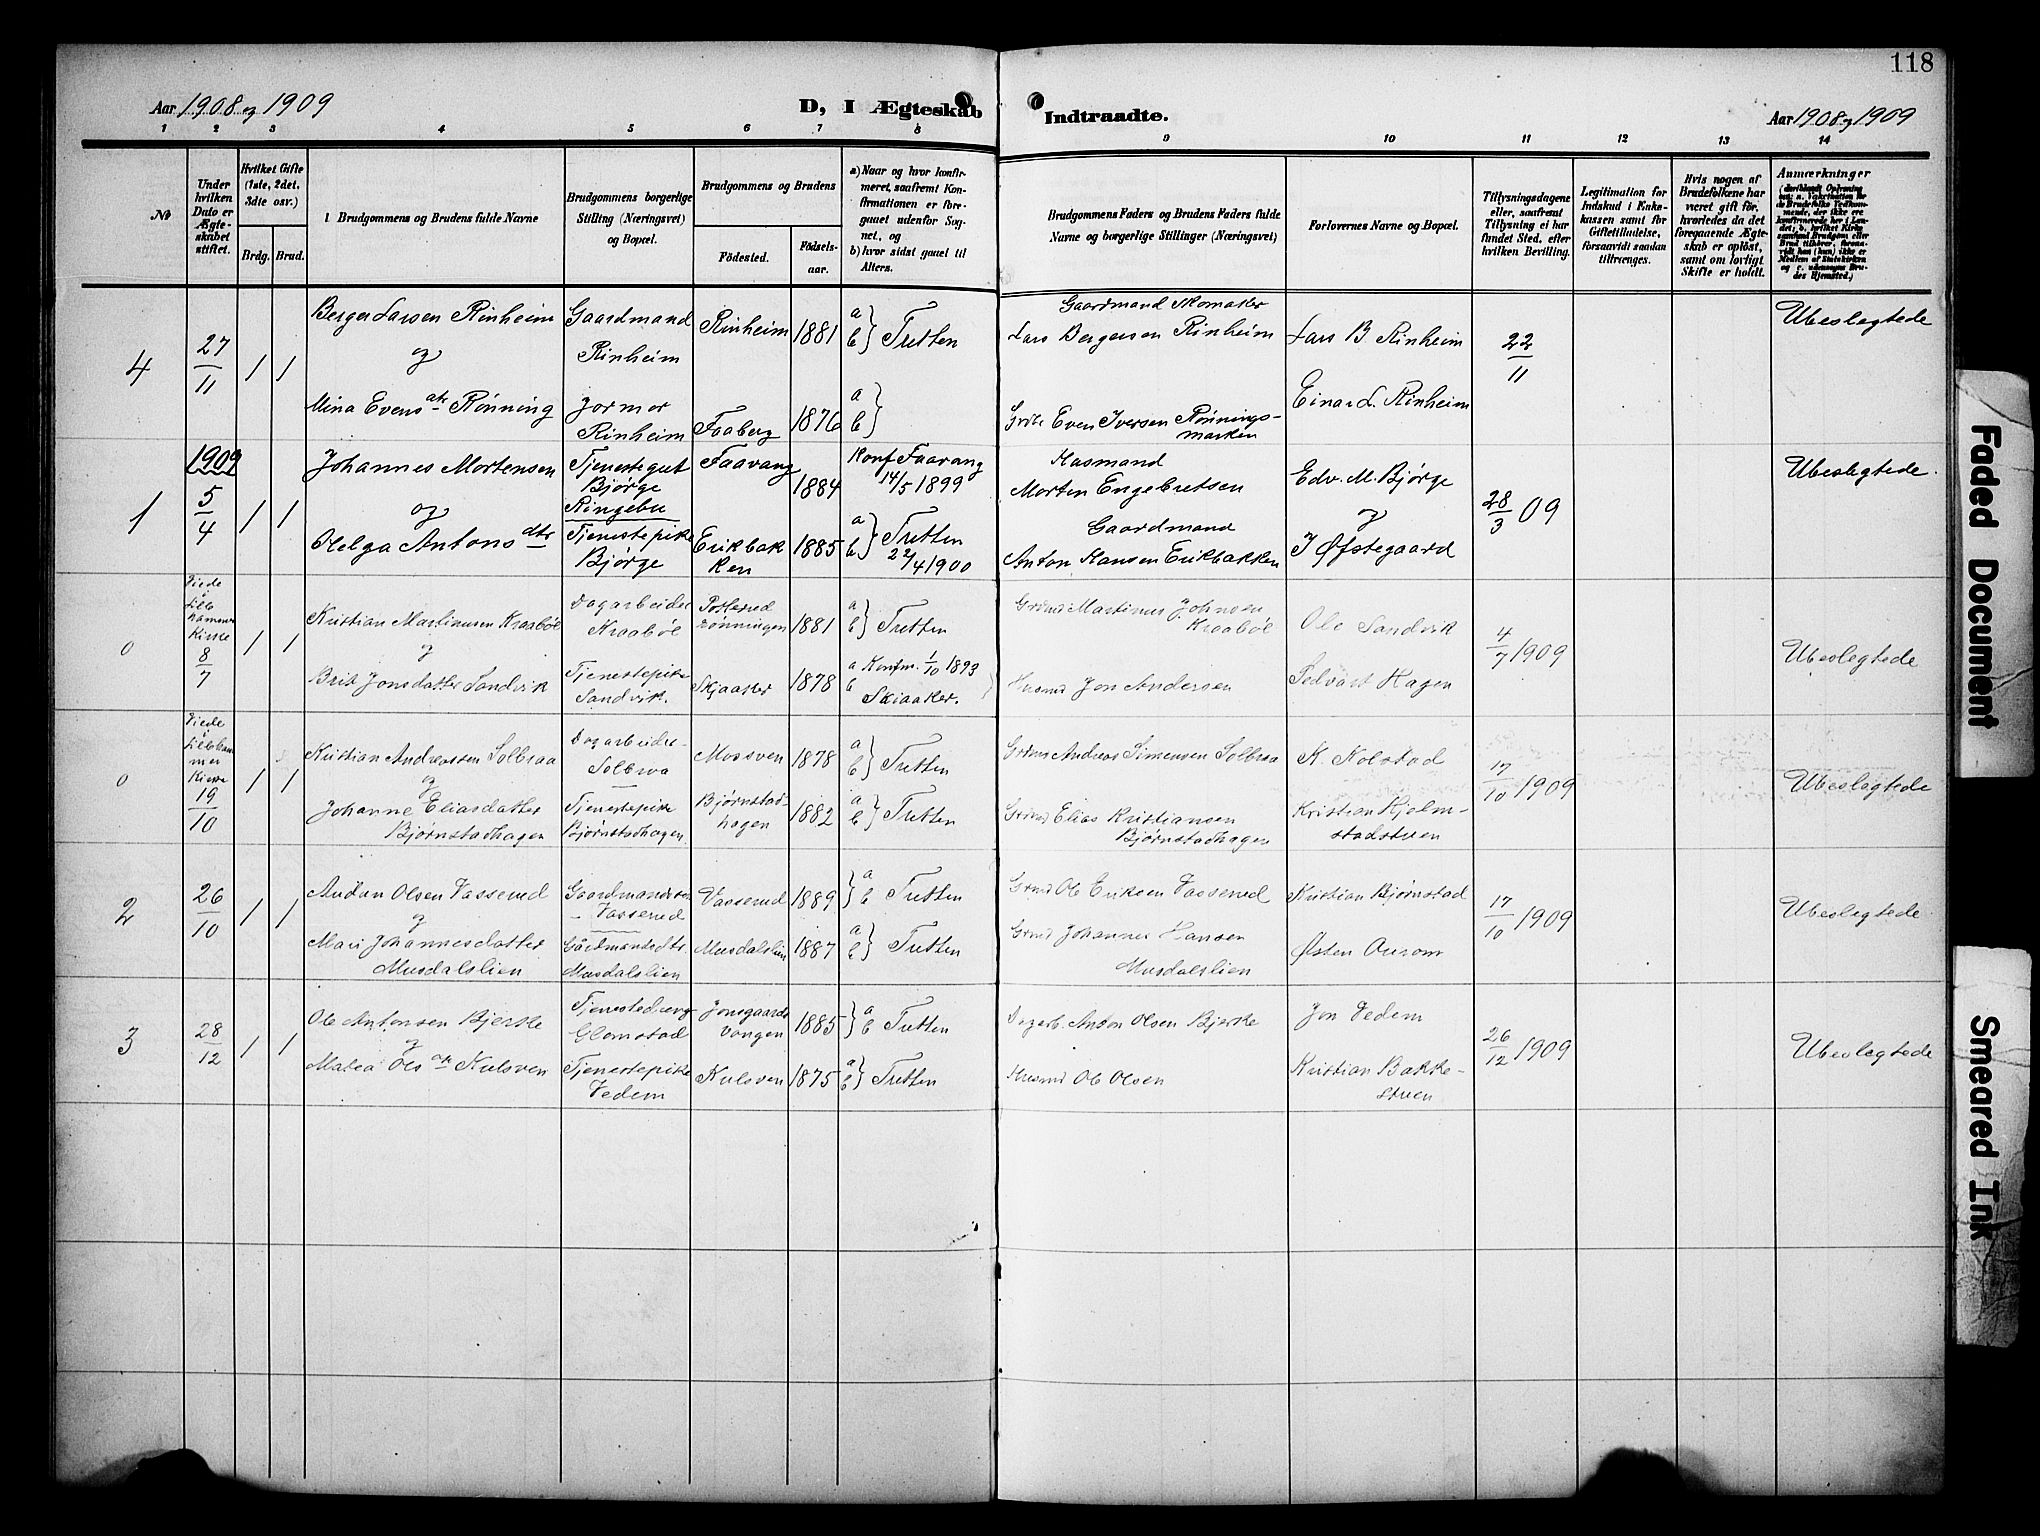 118
Aar 1908 og 1909
D, I Ægteskab
Indtraadte.
Aar 1908 og 1909
1 2 3 4 5 6 7 8 9 10 11 12 13 14
No
Under hvilken Dato er Ægteskabet stiftet.
Hvilket Gifte (1ste, 2det, 3die osv.)
Brdg. Brud.
1. Brudgommens og Brudens fulde Navne
Brudgommens borgerlige Stilling (Næringsvei) og Bopæl.
Brudgommens og Brudens
Födested.
Födselsaar.
a) Naar og hvor konfirmeret, saafremt Konfirmationen er foregaaet udenfor Sognet, og
b) hvor sidst gaaet til Alters.
Brudgommens Faders og Brudens Faders fulde Navne og borgerlige Stillinger (Næringsvei)
Forlovernes Navne og Bopæl.
Tillysningsdagene eller, saafremt Tillysning ei har fundet Sted, efter hvilken Bevilling.
Legitimation for Indskud i Enkekassen samt for Giftetilladelse, forsaavidt saadan tiltrænges.
Hvis nogen af Brudefolkene har været gift för, hvorledes da det foregaaende Ægteskab er oplöst, samt om lovligt Skifte er holdt.
Anmærkninger
4
27/11
1 1
Berger Larsen Rinheim
og
Mina Evensdtr Rönning
Gaardmand
Rinheim
Rinheim
Rinheim
Faaberg
1881
1876
a
b } Tretten
a
b }
Gaardmand Skomaker
Lars Bergersen Rinheim
Even Iversen Rønnings-
marken
Lars B Rinheim
Einar L. Rinheim
22/11
Ubeslegtede
1909
1
5/4
1 1
Johannes Mortensen
og
Helga Antonsdtr
Tjenestegut
Bjørge
Ringebu
Tjenestepike
Bjørge
Faavang
Erikbak
ken
1884
1885
Konf Faavang
14/5 1899
a
b } Tretten
22/4 1900
Husmand
Morten Engebretsen
Gaardmand
Anton Hansen Erikbakken
Edv. M. Bjørge
og
J Øfstegaard
28/3 09
Ubeslegtede.
0
Viede
i
Lille
hammer
Kirke
8/7
1 1
Kristian Martinusen Kraabøl
og
Brit Jonsdatter Sandvik
Dagarbeider
Kraabøl
Tjenestepike
Sandvik.
rønningen
Skjaaker
1881
1878
a
b } Tretten
a Konfm. 1/10 1893
b Skiaaker.
Grdmd Martinus Johnsen
Kraabøl
Husmd Jon Andersen
Ole Sandvik
Sedvart Hagen
4/7 1909
Ubeslegtede
0
Viede
i
Lilleham
mer
Kirke
19/10
1 1
Kristian Andreassen Solbraa
og
Johanne Eliasdatter
Bjørnstadhagen
Dagarbeider
Solbraa
Tjenestepike
Bjørnstadhagen
Mossven
Bjørnstad-
hagen
1878
1882
a
b } Tretten
a
b } Tretten
Grdmd Andreas Simensen Solbraa
Grdmd Elias Kristiansen
Bjørnstadhagen
K. Kolstad
Kristian Hjelm-
stadstuen
17/10 1909
Ubeslegtede
2
26/10
1 1
Audun Olsen Vasserud
og
Mari Johannesdatter
Musdalslien
Gaardmandssøn
Vasserud
Gårdmandsdtr
Musdalslien
Vasserud
Musdalslien
1889
1887
a
b } Tretten
a
b } Tretten
Grmd Ole Eriksen Vasserud
Grmd Johannes Hansen
Musdalslien
Kristian Bjørnstad
Østen Aurom
17/10 1909
Ubeslegtede
3
28/12
1 1
Ole Antonsen Bjerke
og
Matea Olsdtr Kulsven
Tjenestedreng
Glomstad
Tjenestepike
Vedem
Jonsgaards
vangen
Kulsven
1885
1875
a
b } Tretten
a
b } Tretten
Dagarb. Anton Olsen Bjerke
Husmd Ole Olsen
Jon Vedem
Kristian Bakke-
stuen
26/12 1909
Ubeslegtede
Faded Document
Smeared Ink